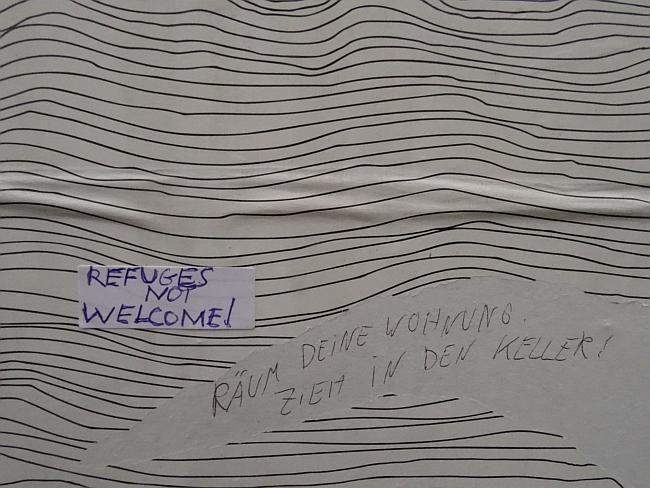 REFUGES
NOT
WELCOME!
RÄUM DEINE WOHNUNG.
ZIEH IN DEN KELLER!